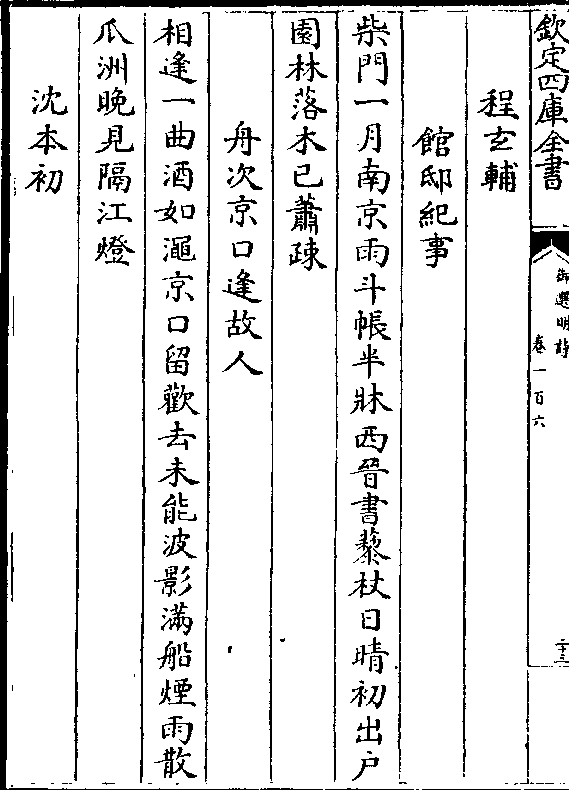 欽定四庫全書
御選明詩
卷一百六
二十三
程玄輔
館邸紀事
柴門一月南京雨斗帳半牀西晉書藜杖日晴初出户
園林落木已蕭疎
舟次京口逢故人
相逢一曲酒如澠京口留歡去未能波影滿船煙雨散
瓜洲晚見隔江燈
沈本初